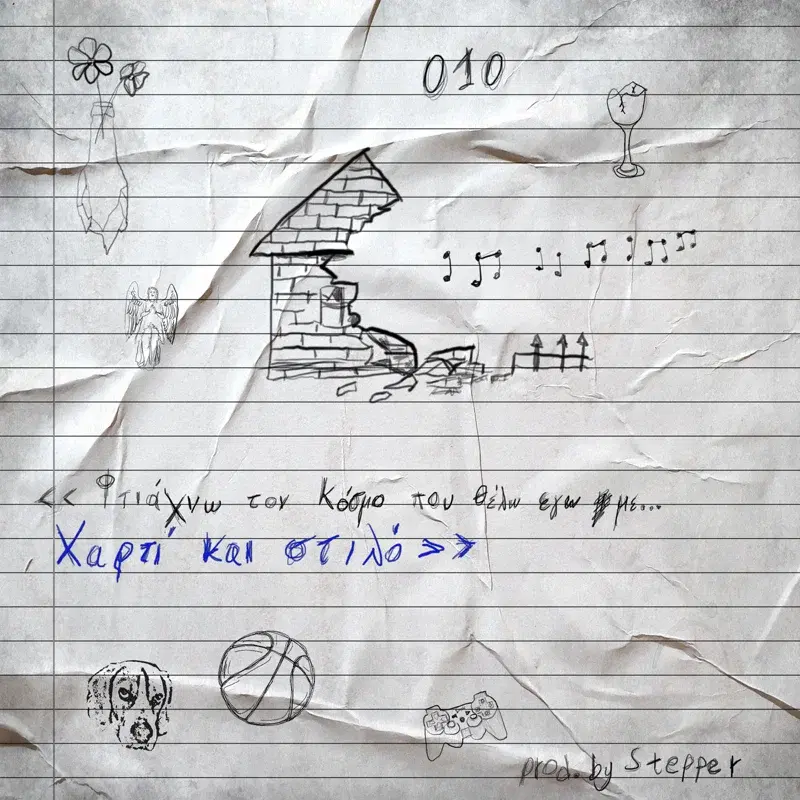 010
<< Φτιάχνω τον κόσμο που θέλω εγω με...
Χαρτί και στιλό >>
prod. by Stepper